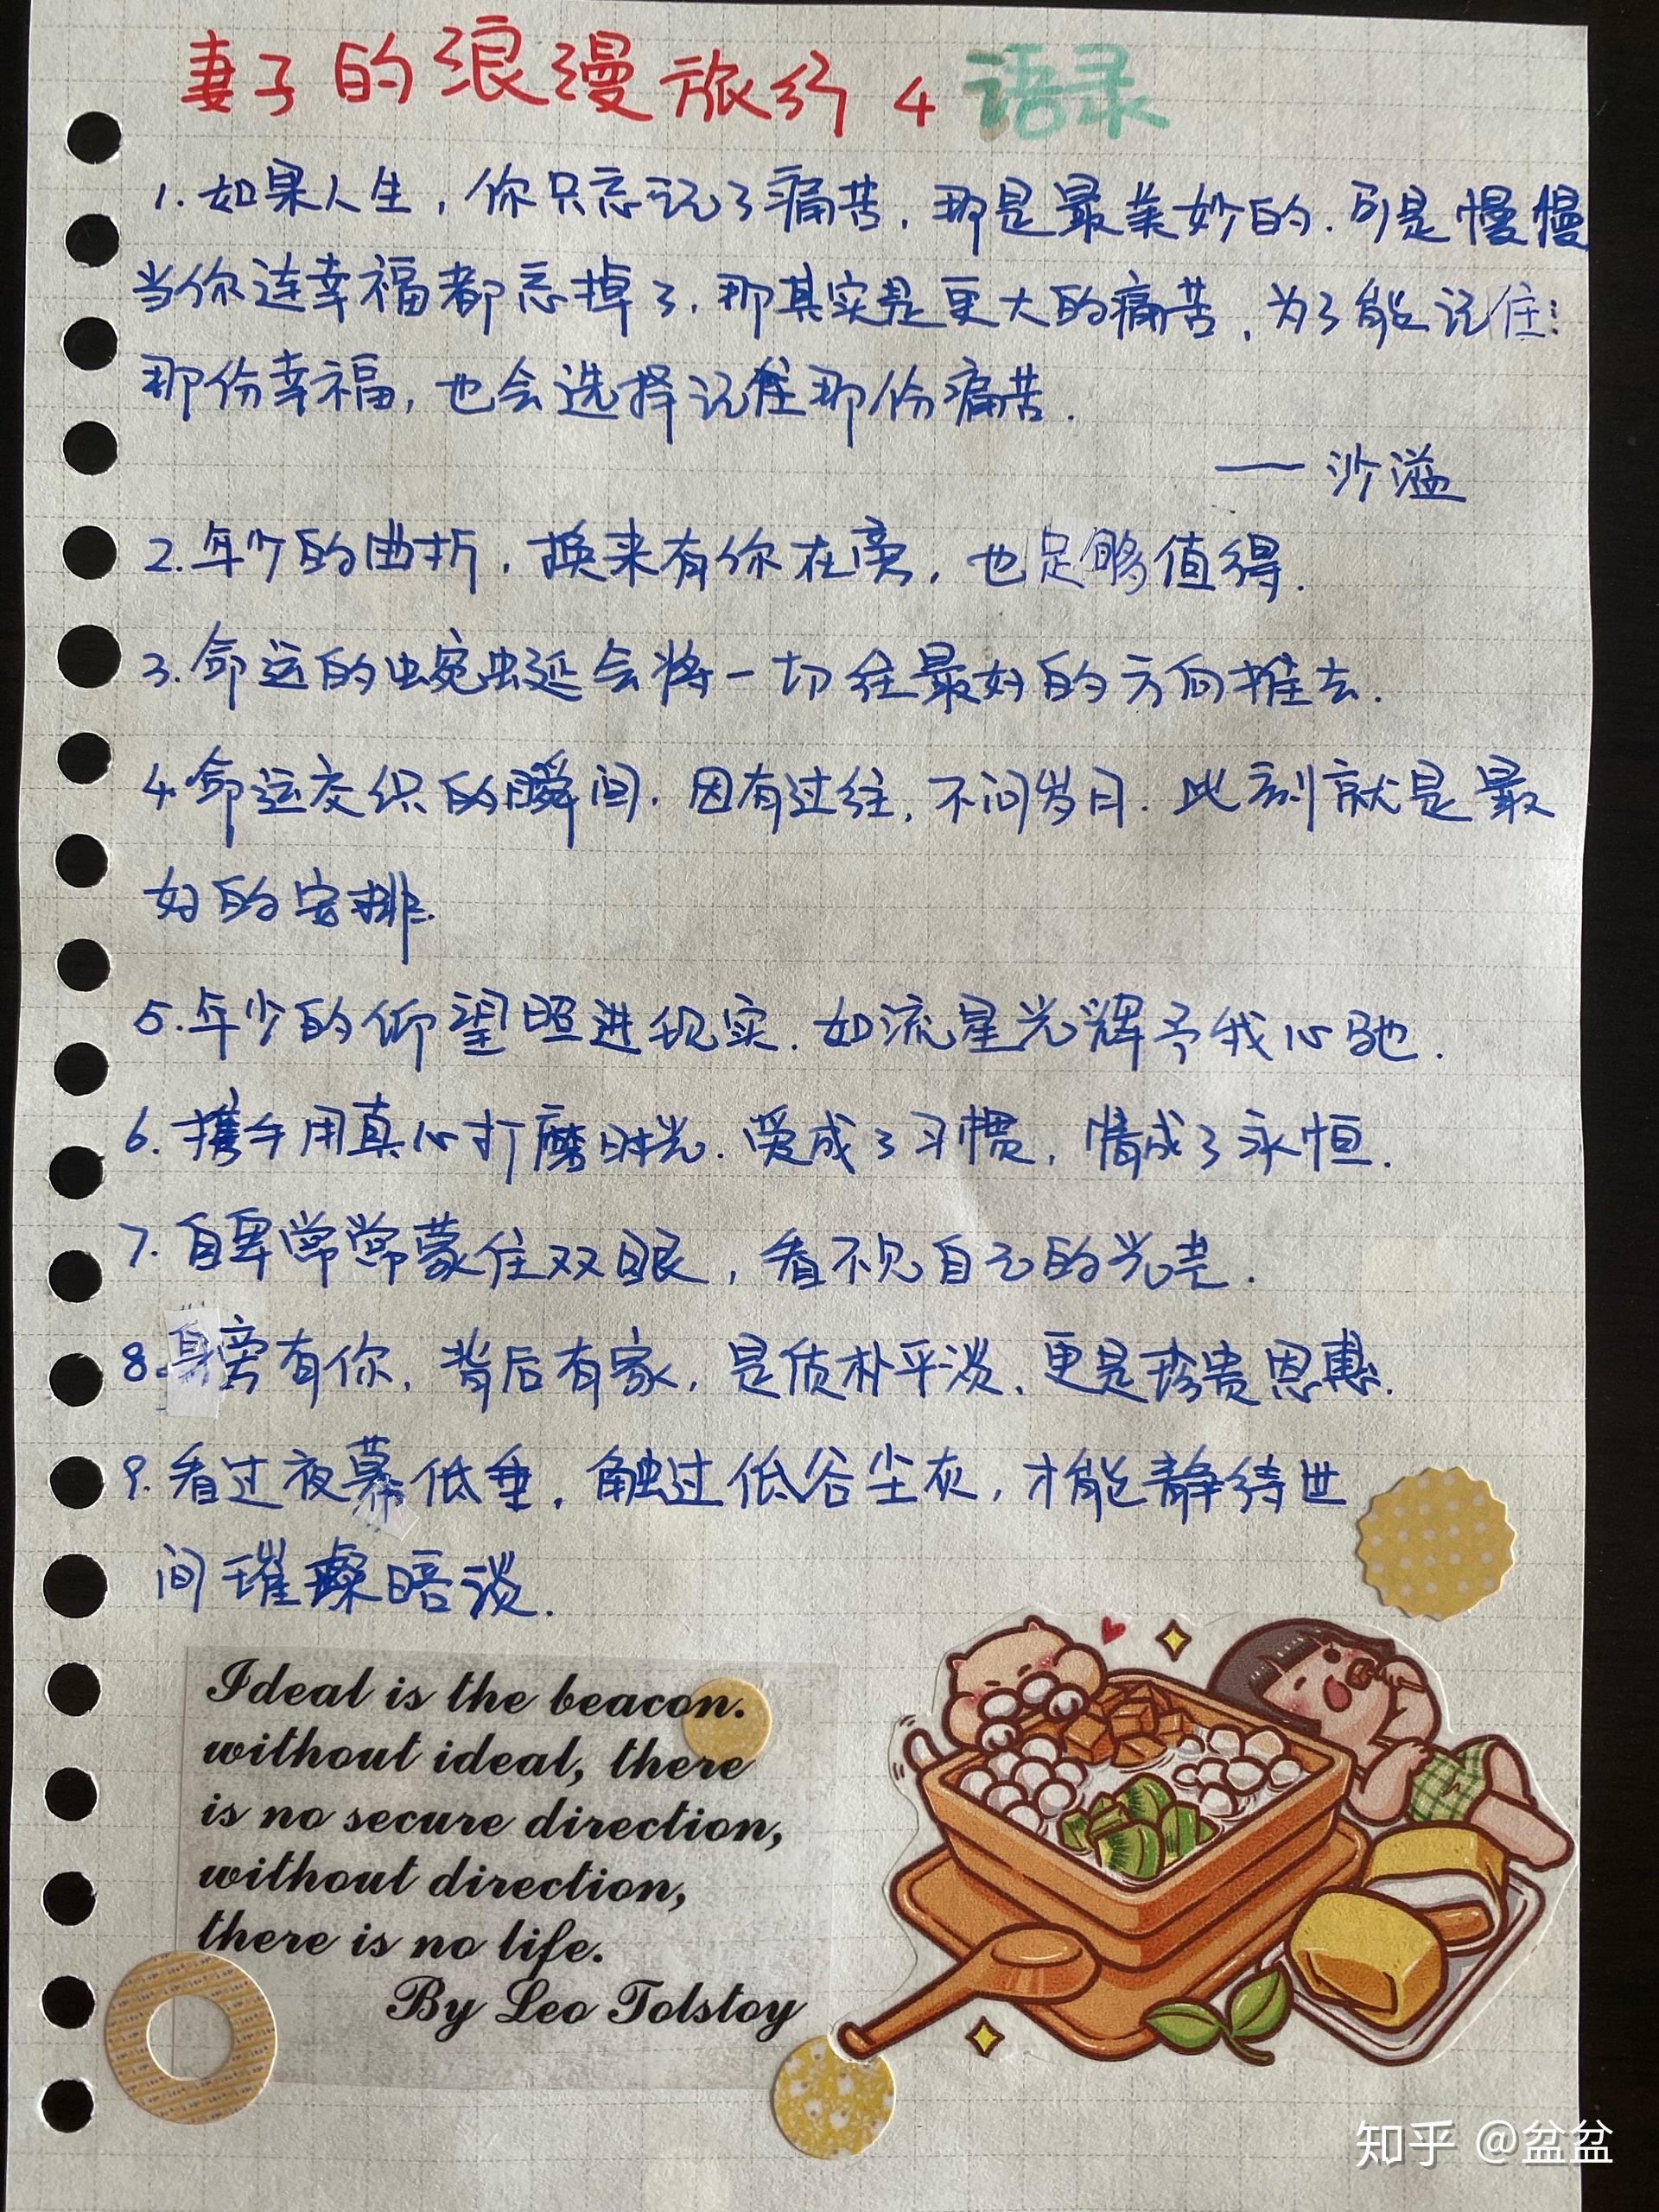 妻子的浪漫旅行4语录
1.如果人生，你只忘记了痛苦，那是最美妙的.可是慢慢
当你连幸福都忘掉了，那其实是更大的痛苦，为了能记住
那份幸福，也会选择记住那份痛苦.
——沙溢
2.年少的曲折，换来有你在旁，也足够值得.
3.命运的蜿蜒会将一切往最好的方向推去.
4.命运交织的瞬间.因有过往，不问岁日.此刻就是最
好的安排.
5.年少的仰望照进现实.如流星光辉予我心驰.
6.携手用真心打磨时光.爱成了习惯，情成了永恒.
7.自卑常常蒙住双眼，看不见自己的光芒.
8.身旁有你，背后有家，是质朴平淡，更是珍贵恩惠.
9.看过夜幕低垂，触过低谷尘灰，才能静待世
间璀璨暗谈.
Ideal is the beacon.
without ideal, there
is no secure direction,
without direction,
there is no life.
By Leo Tolstoy
知乎 @盆盆